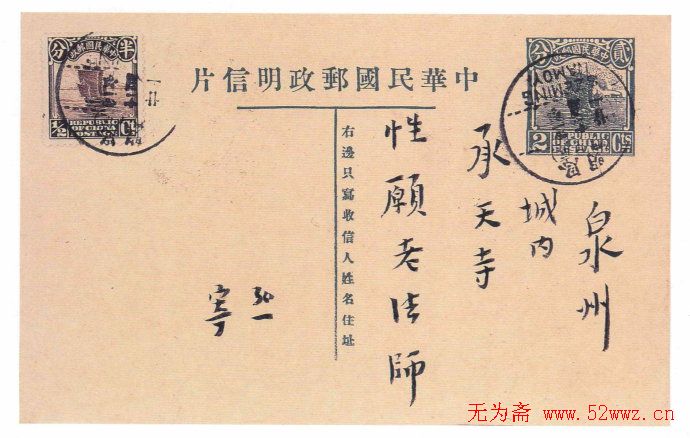 中華民國郵政明信片
貳分
中華民國郵政
2 Cts
REPUBLIC
OF CHINA
AMOY
MING
泉州
城内
承天寺
性願老法師
右邊只寫收信人姓名住址
弘一
寄
半分
中華民國郵政
REPUBLIC
OF CHINA
POSTAGE
1/2 Ct.
无为斋 www.52wwz.cn